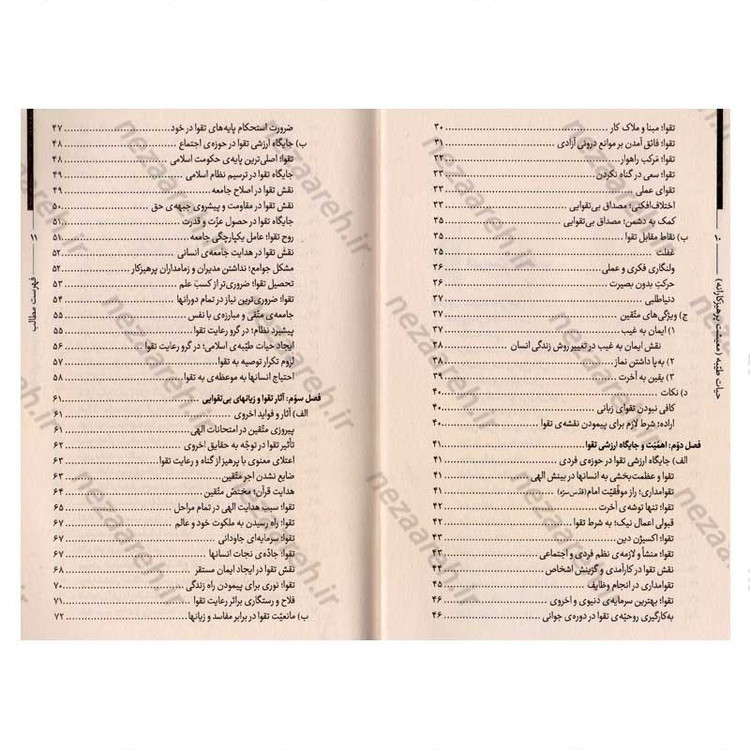 تقوا؛ مبنا و ملاک کار ........ ۳۰
تقوا؛ فائق آمدن بر موانع درونی آزادی ........ ۳۱
تقوا؛ مَرکب راهوار ........ ۳۲
تقوا؛ سعی در گناه نکردن ........ ۳۳
تقوای عملی ........ ۳۳
اختلاف‌افکنی؛ مصداق بی‌تقوایی ........ ۳۳
کمک به دشمن؛ مصداق بی‌تقوایی ........ ۳۵
ب) نقاط مقابل تقوا ........ ۳۵
غفلت ........ ۳۵
ولنگاری فکری و عملی ........ ۳۶
حرکتِ بدون بصیرت ........ ۳۶
دنیاطلبی ........ ۳۷
ج) ویژگی‌های متّقین ........ ۳۷
۱) ایمان به غیب ........ ۳۷
نقش ایمان به غیب در تغییر روش زندگی انسان ........ ۳۸
۲) به‌پا داشتن نماز ........ ۳۸
۳) یقین به آخرت ........ ۳۹
د) نکات ........ ۴۰
کافی نبودن تقوای زبانی ........ ۴۰
اراده؛ شرط لازم برای پیمودن نقشه‌ی تقوا ........ ۴۰
فصل دوّم: اهمّیّت و جایگاه ارزشی تقوا ........ ۴۱
الف) جایگاه ارزشی تقوا در حوزه‌ی فردی ........ ۴۱
تقوا و عظمت‌بخشی به انسانها در بینش الهی ........ ۴۱
تقوامداری؛ راز موفّقیّت امام (قدّس‌سرّه) ........ ۴۱
تقوا؛ تنها توشه‌ی آخرت ........ ۴۲
قبولی اعمال نیک؛ به شرط تقوا ........ ۴۲
تقوا؛ اکسیژن دین ........ ۴۳
تقوا؛ منشأ و لازمه‌ی نظم فردی و اجتماعی ........ ۴۳
نقش تقوا در کارآمدی و گزینش اشخاص ........ ۴۴
تقوامداری در انجام وظایف ........ ۴۵
تقوا؛ بهترین سرمایه‌ی دنیوی و اخروی ........ ۴۶
به‌کارگیری روحیّه‌ی تقوا در دوره‌ی جوانی ........ ۴۶
۱۰
حیات طیّبه (معیشت پرهیزکارانه)
ضرورت استحکام پایه‌های تقوا در خود ........ ۴۷
ب) جایگاه ارزشی تقوا در حوزه‌ی اجتماع ........ ۴۸
تقوا؛ اصلی‌ترین پایه‌ی حکومت اسلامی ........ ۴۸
جایگاه تقوا در ترسیم نظام اسلامی ........ ۴۹
نقش تقوا در اصلاح جامعه ........ ۴۹
نقش تقوا در مقاومت و پیشروی جبهه‌ی حق ........ ۵۰
جایگاه تقوا در حصول عزّت و قدرت ........ ۵۱
روح تقوا؛ عامل یکپارچگی جامعه ........ ۵۱
نقش تقوا در هدایت جامعه‌ی انسانی ........ ۵۲
مشکل جوامع؛ نداشتن مدیران و زمامداران پرهیزکار ........ ۵۲
تحصیل تقوا؛ ضروری‌تر از کسبِ علم ........ ۵۳
تقوا؛ ضروری‌ترین نیاز در تمام دورانها ........ ۵۴
جامعه‌ی متّقی و مبارزه‌ی با نفس ........ ۵۵
پیشبرد نظام؛ در گرو رعایت تقوا ........ ۵۵
ایجاد حیات طیّبه‌ی اسلامی؛ در گرو رعایت تقوا ........ ۵۶
لزوم تکرار توصیه به تقوا ........ ۵۷
احتیاج انسانها به موعظه‌ی به تقوا ........ ۵۸
فصل سوّم: آثار تقوا و زیانهای بی‌تقوایی ........ ۶۱
الف) آثار و فواید اخروی ........ ۶۱
پیروزی متّقین در امتحانات الهی ........ ۶۱
تأثیر تقوا در توجّه به حقایق اخروی ........ ۶۲
اعتلای معنوی با پرهیز از گناه و رعایت تقوا ........ ۶۳
ضایع نشدن اجر متّقین ........ ۶۳
هدایت قرآن؛ مختصّ متّقین ........ ۶۴
تقوا؛ سبب هدایت الهی در تمام مراحل ........ ۶۵
تقوا؛ راه رسیدن به ملکوت خود و عالم ........ ۶۷
تقوا؛ سرمایه‌ای جاودانی ........ ۶۷
تقوا؛ جادّه‌ی نجات انسانها ........ ۶۷
نقش تقوا در ایجاد ایمان مستقر ........ ۶۸
تقوا؛ نوری برای پیمودن راه زندگی ........ ۷۰
فلاح و رستگاری براثر رعایت تقوا ........ ۷۱
ب) مانعیّت تقوا در برابر مفاسد و زیانها ........ ۷۲
۱۱
فهرست مطالب
nezaareh.ir